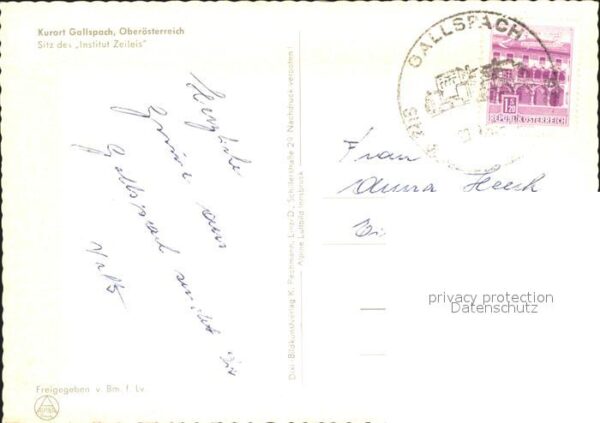 Kurort Gallspach, Oberösterreich
Sitz des „Institut Zeileis"
Herzliche
Grüße aus
Gallspach sendet Dir
Freigegeben v. Bm. f. Lv.
Drei-Bildkunstverlag K. Piechmann, Linz/D., Schillerstraße 29 Nachdruck verboten!
Alpine Luftbild Innsbruck
GALLSPACH
1.20
REPUBLIK ÖSTERREICH
Frau
Anna Heeck
privacy protection
Datenschutz